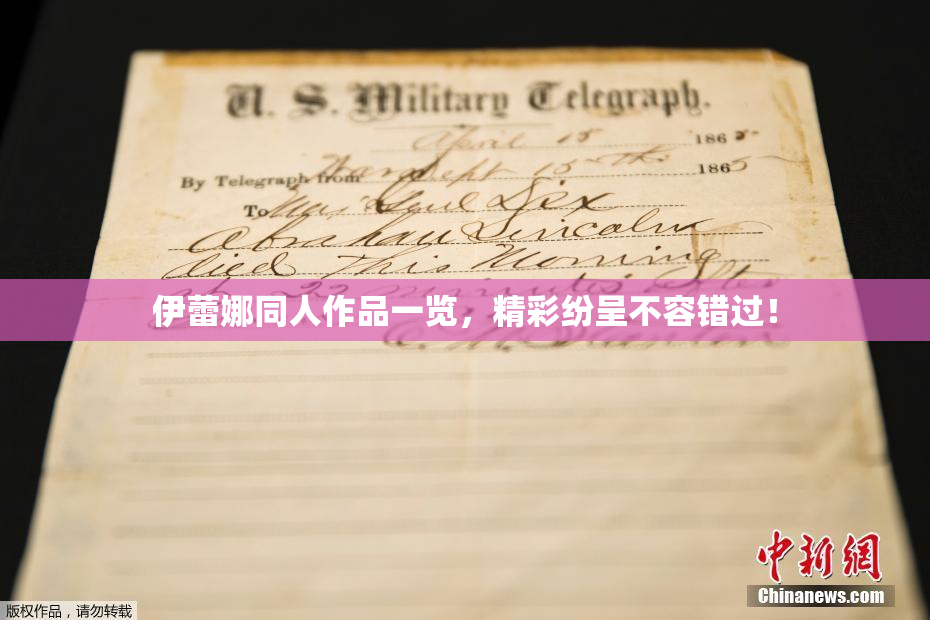 U. S. Military Telegraph.
April 15 1865
By Telegraph from War Dept 15th 1865
To Maj Genl Dix
Abraham Lincoln
died This Morning
at 22 minutes after
伊蕾娜同人作品一览，精彩纷呈不容错过！
中新网
Chinanews.com
版权作品，请勿转载